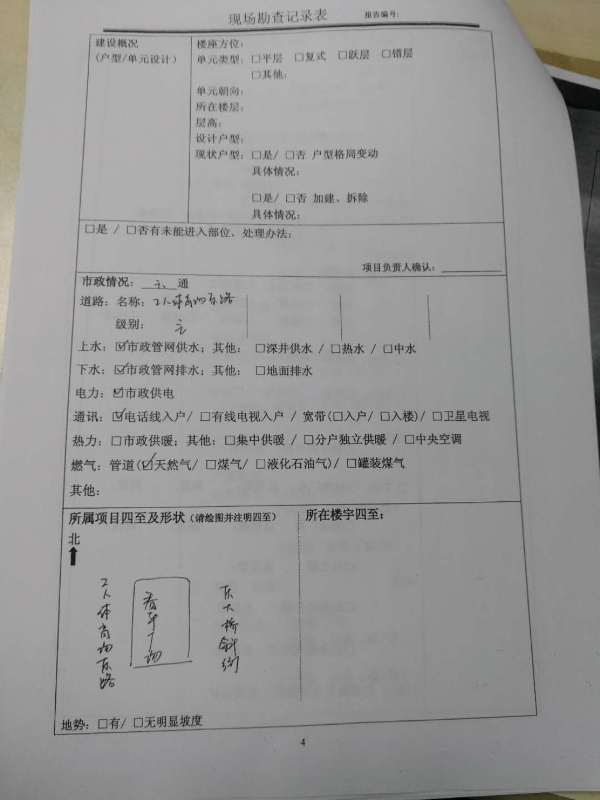 现场勘查记录表 报告编号:
建设概况
(户型/单元设计)
楼座方位:
单元类型: □平层 □复式 □跃层 □错层
□其他:
单元朝向:
所在楼层:
层高:
设计户型:
现状户型: □是/ □否 户型格局变动
具体情况:
□是/ □否 加建、拆除
具体情况:
□是 / □否有未能进入部位、处理办法:
项目负责人确认:
市政情况: 通
道路: 名称: 工人体育场东路
级别: 主
上水: ☑市政管网供水; 其他: □深井供水 / □热水 / □中水
下水: ☑市政管网排水; 其他: □地面排水
电力: ☑市政供电
通讯: ☑电话线入户/ □有线电视入户 / 宽带(□入户/ □入楼)/ □卫星电视
热力: □市政供暖; 其他: □集中供暖 / □分户独立供暖 / □中央空调
燃气: 管道(☑天然气/ □煤气/ □液化石油气)/ □罐装煤气
其他:
所属项目四至及形状 (请绘图并注明四至)
北
工人体育场东路
广场
东大桥斜街
所在楼宇四至:
地势: □有/ □无明显坡度
4